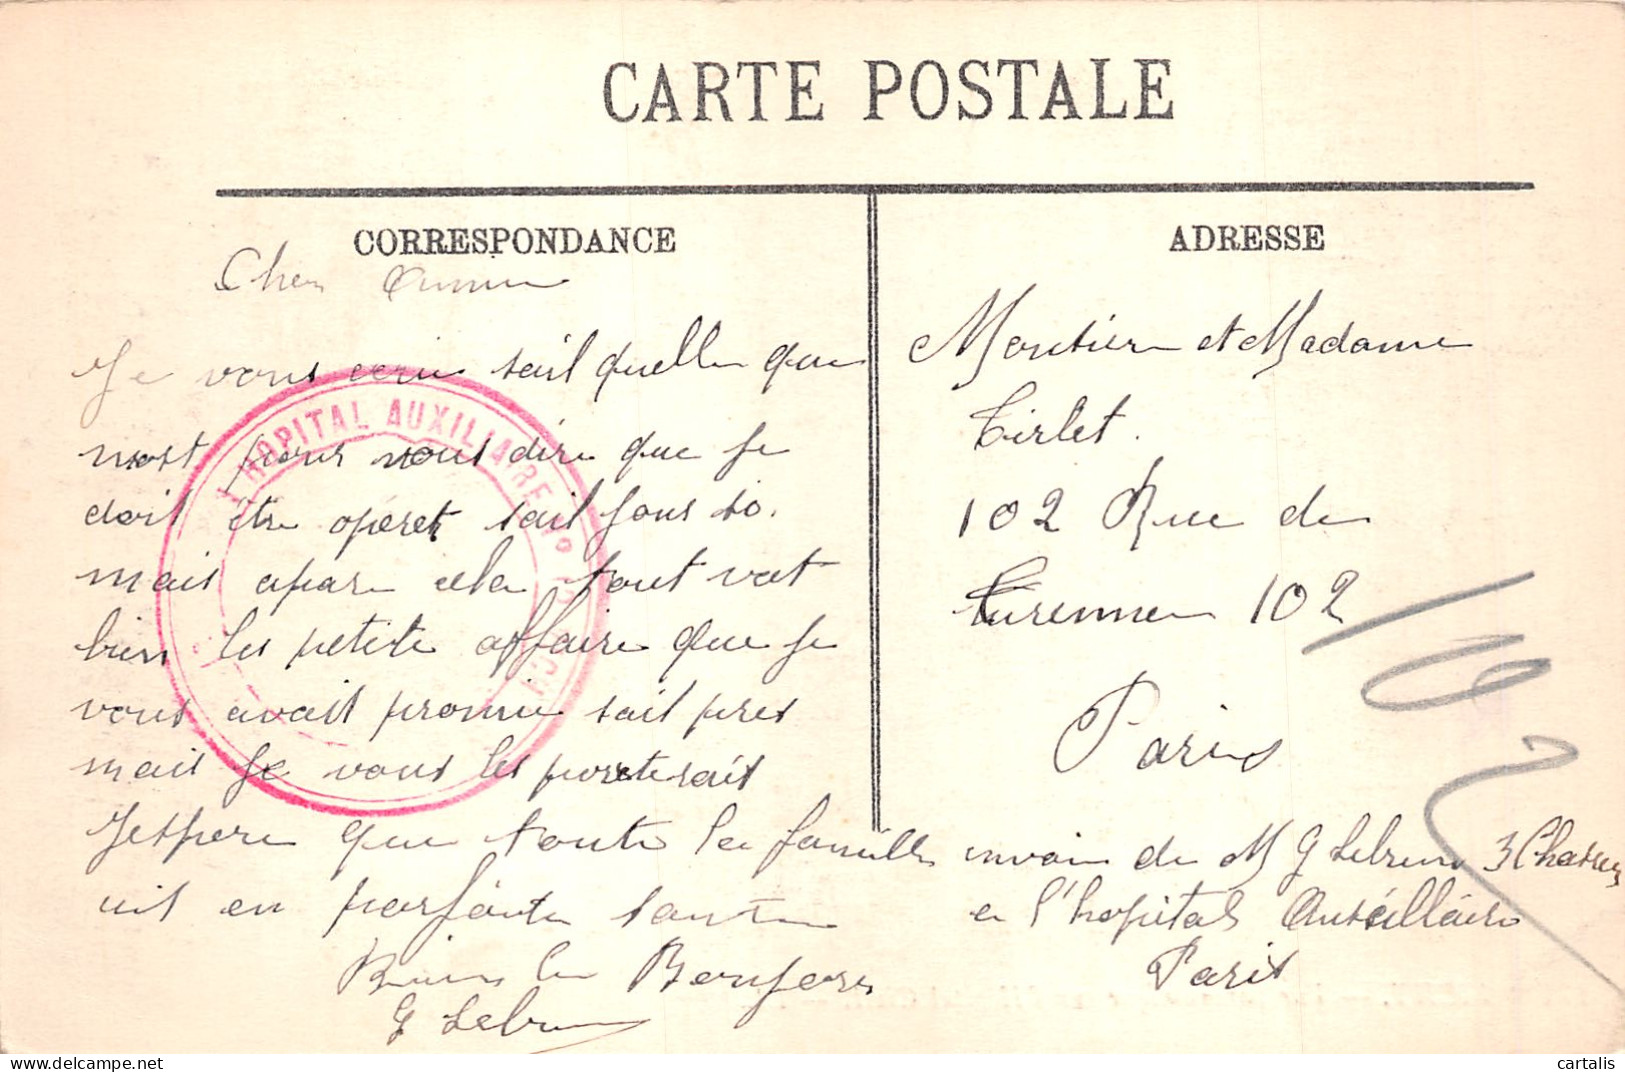 CARTE POSTALE
CORRESPONDANCE
Cher
Je vous ecrie sait quelle que
most pour vous dire que je
doit être operet sait jour si.
mais apare cela tout vat
bien les petite affaire que je
vous avait promie sait pret
mais je vous les porterait
Jesper que toute la famille
en parfaite sante
G Lebrun
HOPITAL AUXILIAIRE No
ADRESSE
Monsier et Madame
Tirlet.
102 Rue de
turenne 102
Paris
invoi de M G Lebrun 3 Chasseur
a l'hopital Auxeillaire
Parit
cartalis